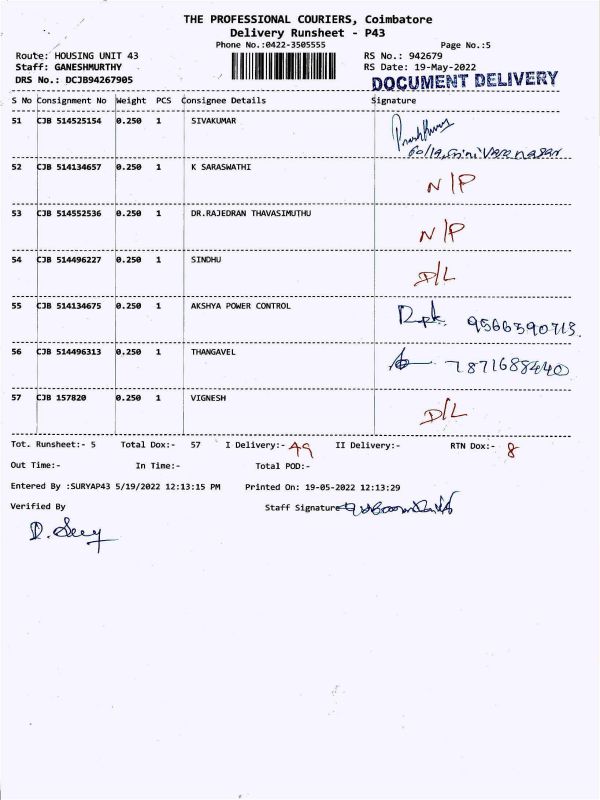 THE PROFESSIONAL COURIERS, Coimbatore
Delivery Runsheet - P43
Phone No.:0422-3505555 Page No.:5
Route: HOUSING UNIT 43 RS No.: 942679
Staff: GANESHMURTHY RS Date: 19-May-2022
DRS No.: DCJB94267905 DOCUMENT DELIVERY
S No Consignment No Weight PCS Consignee Details Signature
51 CJB 514525154 0.250 1 SIVAKUMAR
60/19,
52 CJB 514134657 0.250 1 K SARASWATHI N/P
53 CJB 514552536 0.250 1 DR.RAJEDRAN THAVASIMUTHU N/P
54 CJB 514496227 0.250 1 SINDHU D/L
55 CJB 514134675 0.250 1 AKSHYA POWER CONTROL
56 CJB 514496313 0.250 1 THANGAVEL 7871688440
57 CJB 157820 0.250 1 VIGNESH D/L
Tot. Runsheet:- 5 Total Dox:- 57 I Delivery:- 49 II Delivery:- RTN Dox:- 8
Out Time:- In Time:- Total POD:-
Entered By :SURYAP43 5/19/2022 12:13:15 PM Printed On: 19-05-2022 12:13:29
Verified By Staff Signature